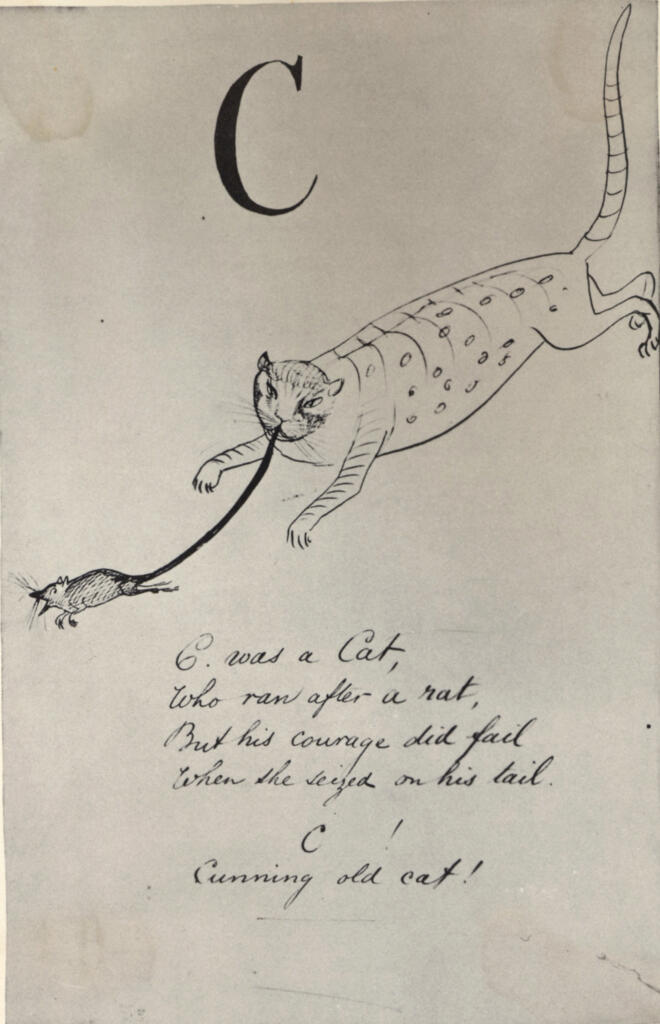 C
C. was a Cat,
Who ran after a rat,
But his courage did fail
When she seized on his tail.
C !
Cunning old cat!